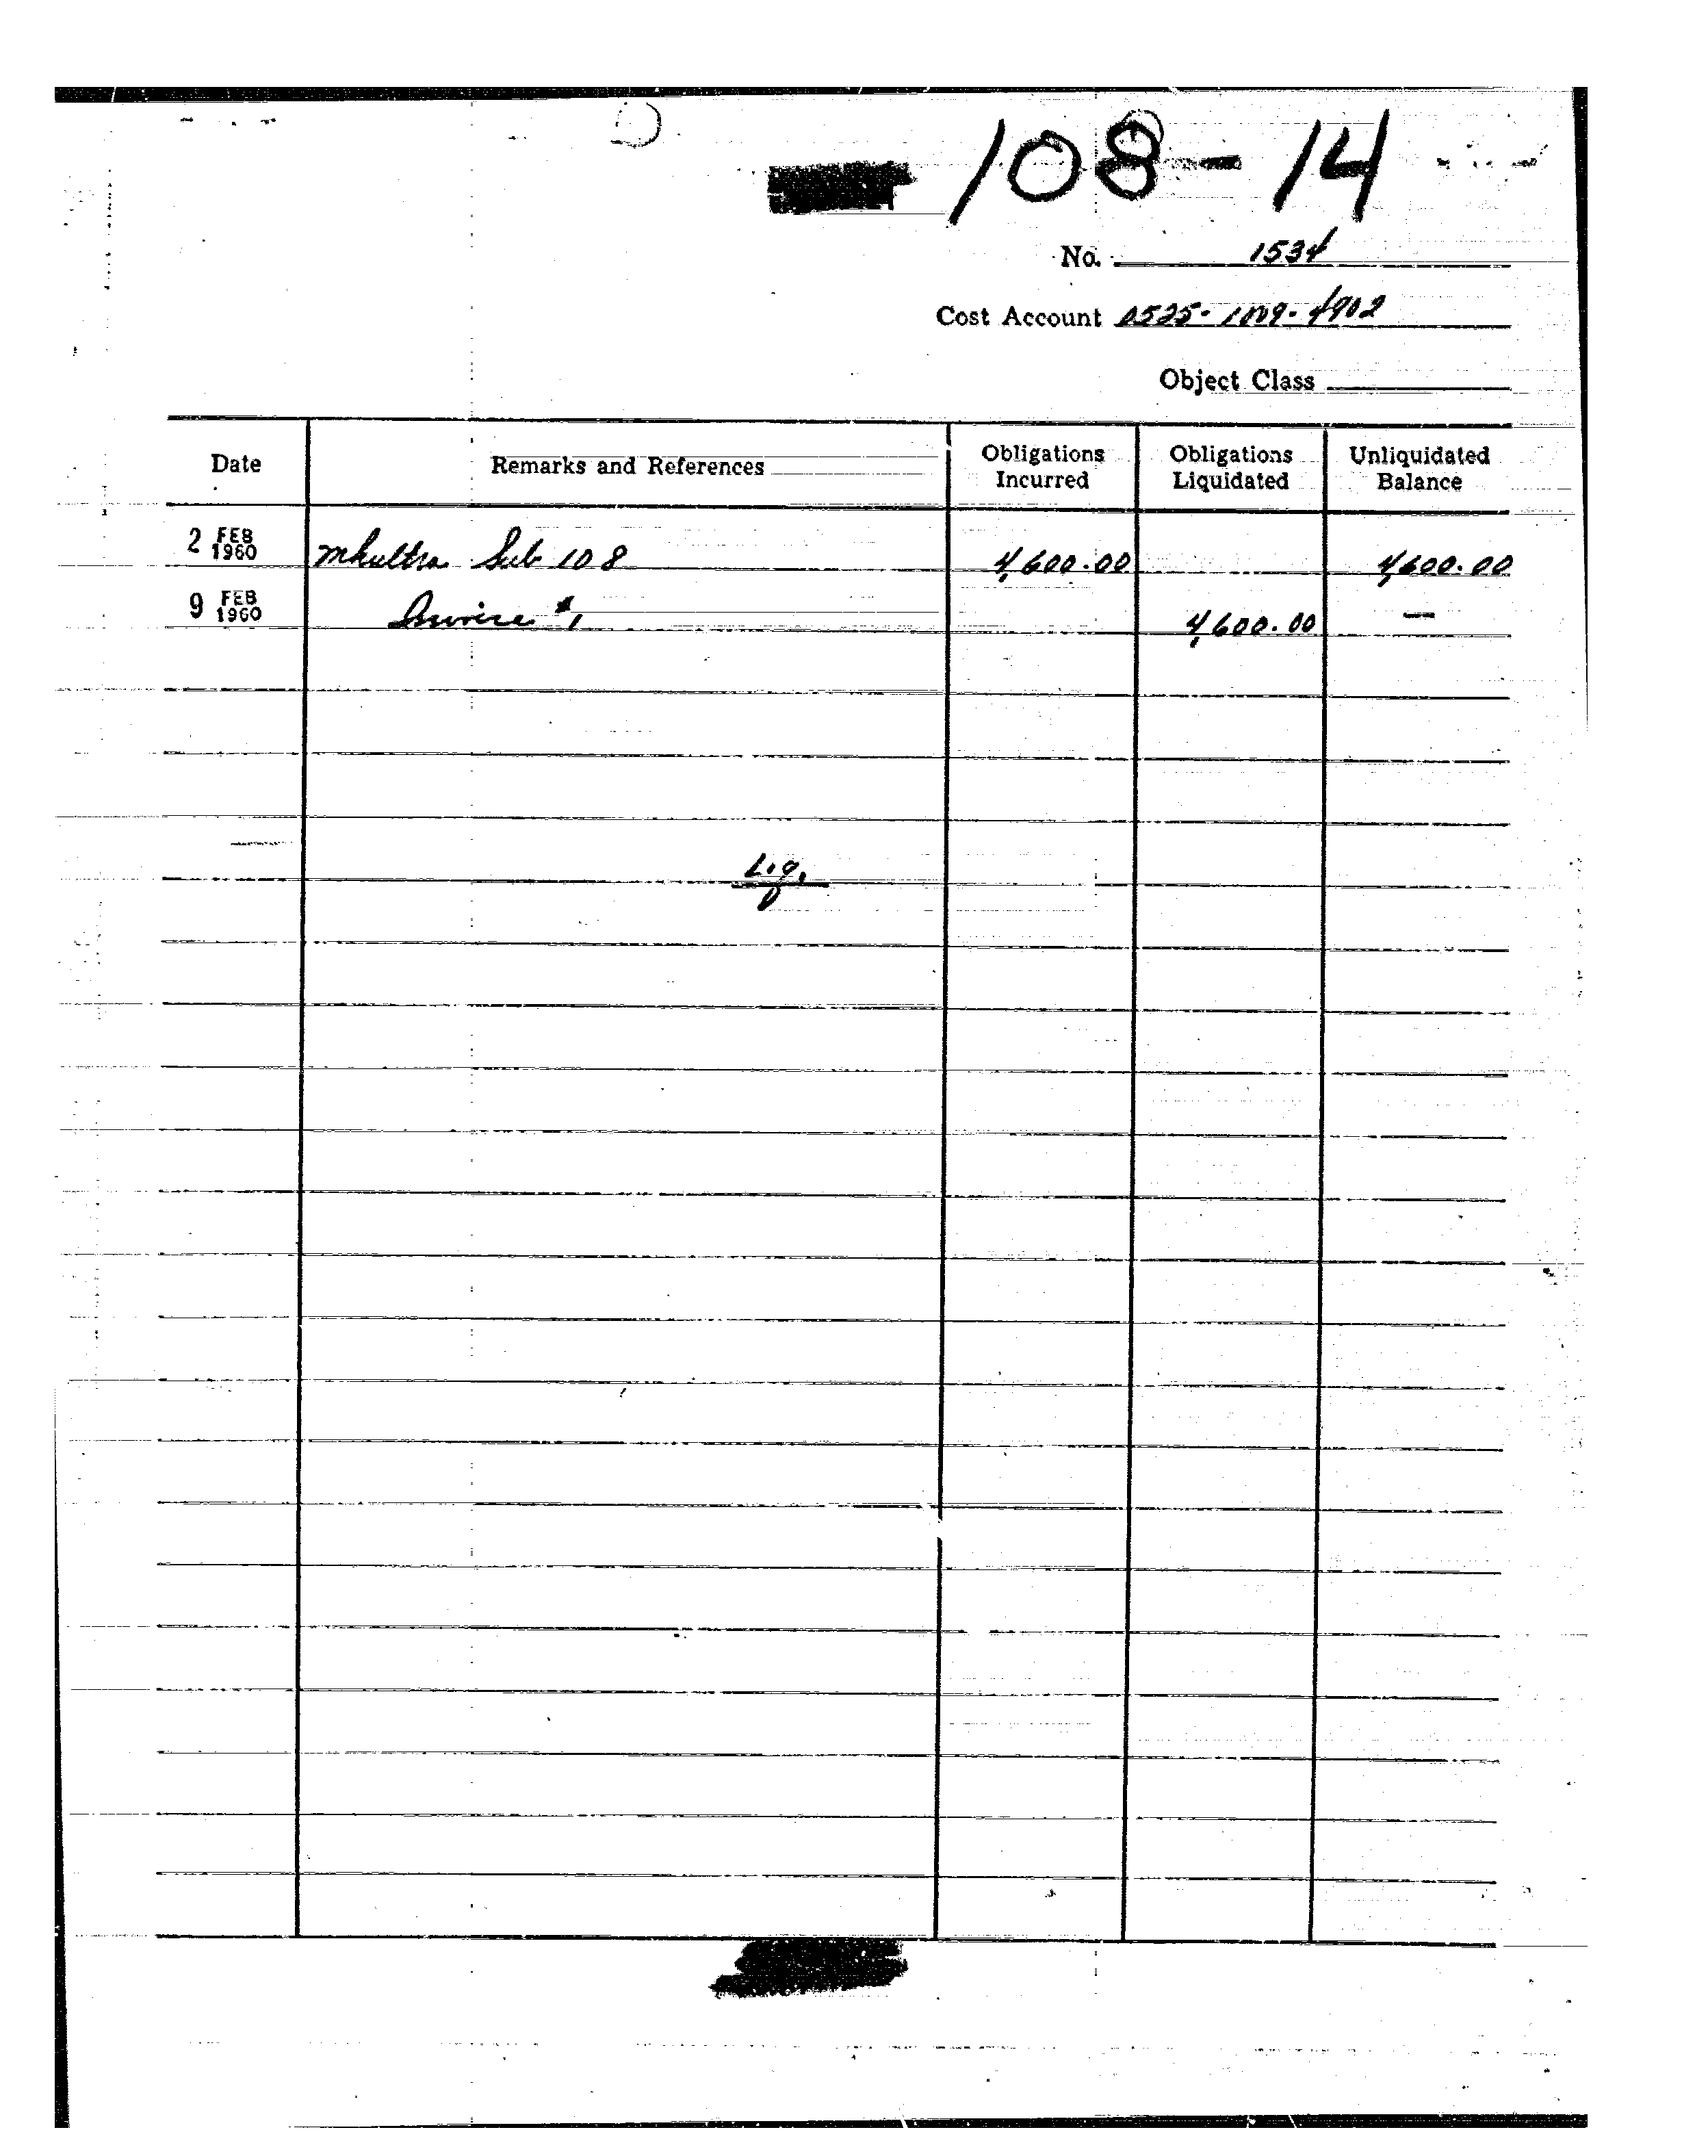 108-14
No. 1534
Cost Account 0525-1009-4902
Object Class
Date Remarks and References Obligations Incurred Obligations Liquidated Unliquidated Balance
2 FEB 1960 Mkultra Sub 108 4,600.00 4,600.00
9 FEB 1960 Invoice #1 4,600.00 —